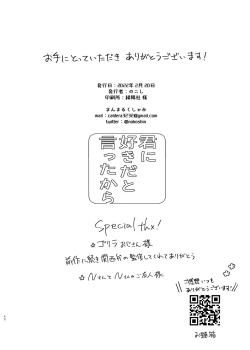 お手にとっていただき ありがとうございます!
発行日:2022年2月20日
発行者:のこし
印刷所:緑陽社 様
まんまるくしゃみ
twitter:@nokoshin
君に
好きだと
言ったから
Special thx!
☆ゴリラおじさん様
前作に続き関西弁の監修してくれてありがとう
☆NさんとNさんのご友人様
ご感想いつも
ありがとうございます!!
お題箱